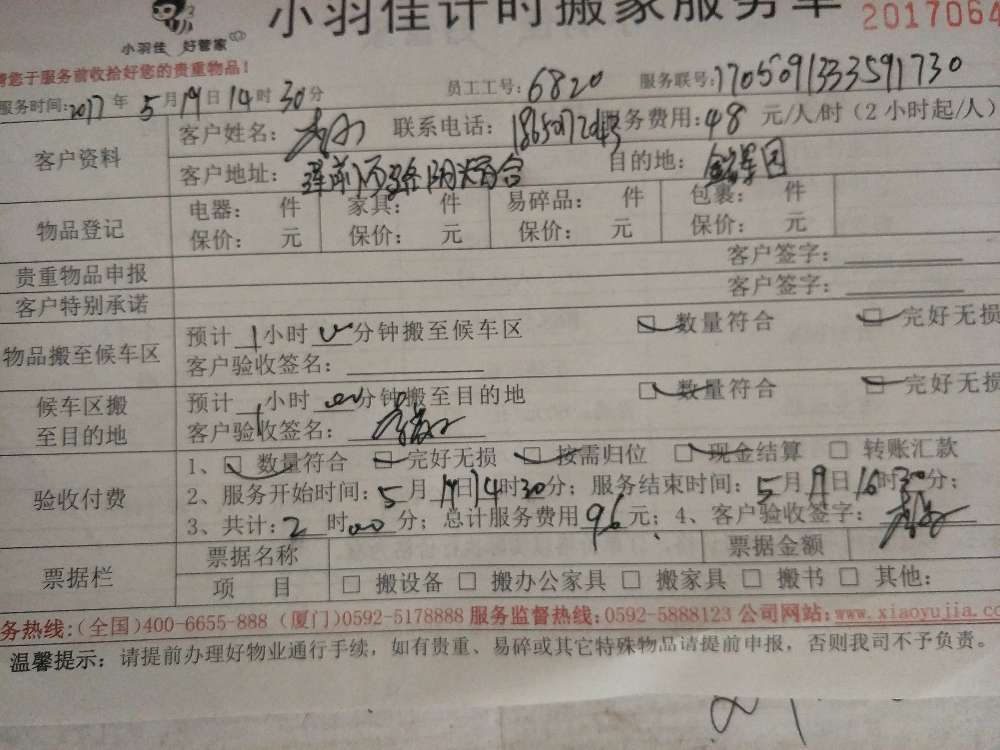 小羽佳计时搬家服务单 2017064
小羽佳 好管家
请您于服务前收拾好您的贵重物品!
服务时间:2017年5月19日14时30分 员工工号:6820 服务联号:1705091333591730
客户资料 客户姓名: 联系电话: 务费用:48元/人/时(2小时起/人)
客户地址: 目的地:
物品登记 电器: 件 家具: 件 易碎品: 件 包裹: 件
保价: 元 保价: 元 保价: 元 保价: 元
贵重物品申报 客户签字:
客户特别承诺 客户签字:
物品搬至候车区 预计1小时 分钟搬至候车区 数量符合 完好无损
客户验收签名:
候车区搬至目的地 预计1小时00分钟搬至目的地 数量符合 完好无损
客户验收签名:
验收付费 1、数量符合 完好无损 按需归位 现金结算 □ 转账汇款
2、服务开始时间:5月19日14时30分;服务结束时间:5月19日16时30分;
3、共计:2时00分;总计服务费用96元;4、客户验收签字:
票据栏 票据名称 票据金额
项 目 □ 搬设备 □ 搬办公家具 □ 搬家具 □ 搬书 □ 其他:
务热线:(全国)400-6655-888 (厦门)0592-5178888 服务监督热线:0592-5888123 公司网站:www.xiaoyujia.co
温馨提示:请提前办理好物业通行手续,如有贵重、易碎或其它特殊物品请提前申报,否则我司不予负责。